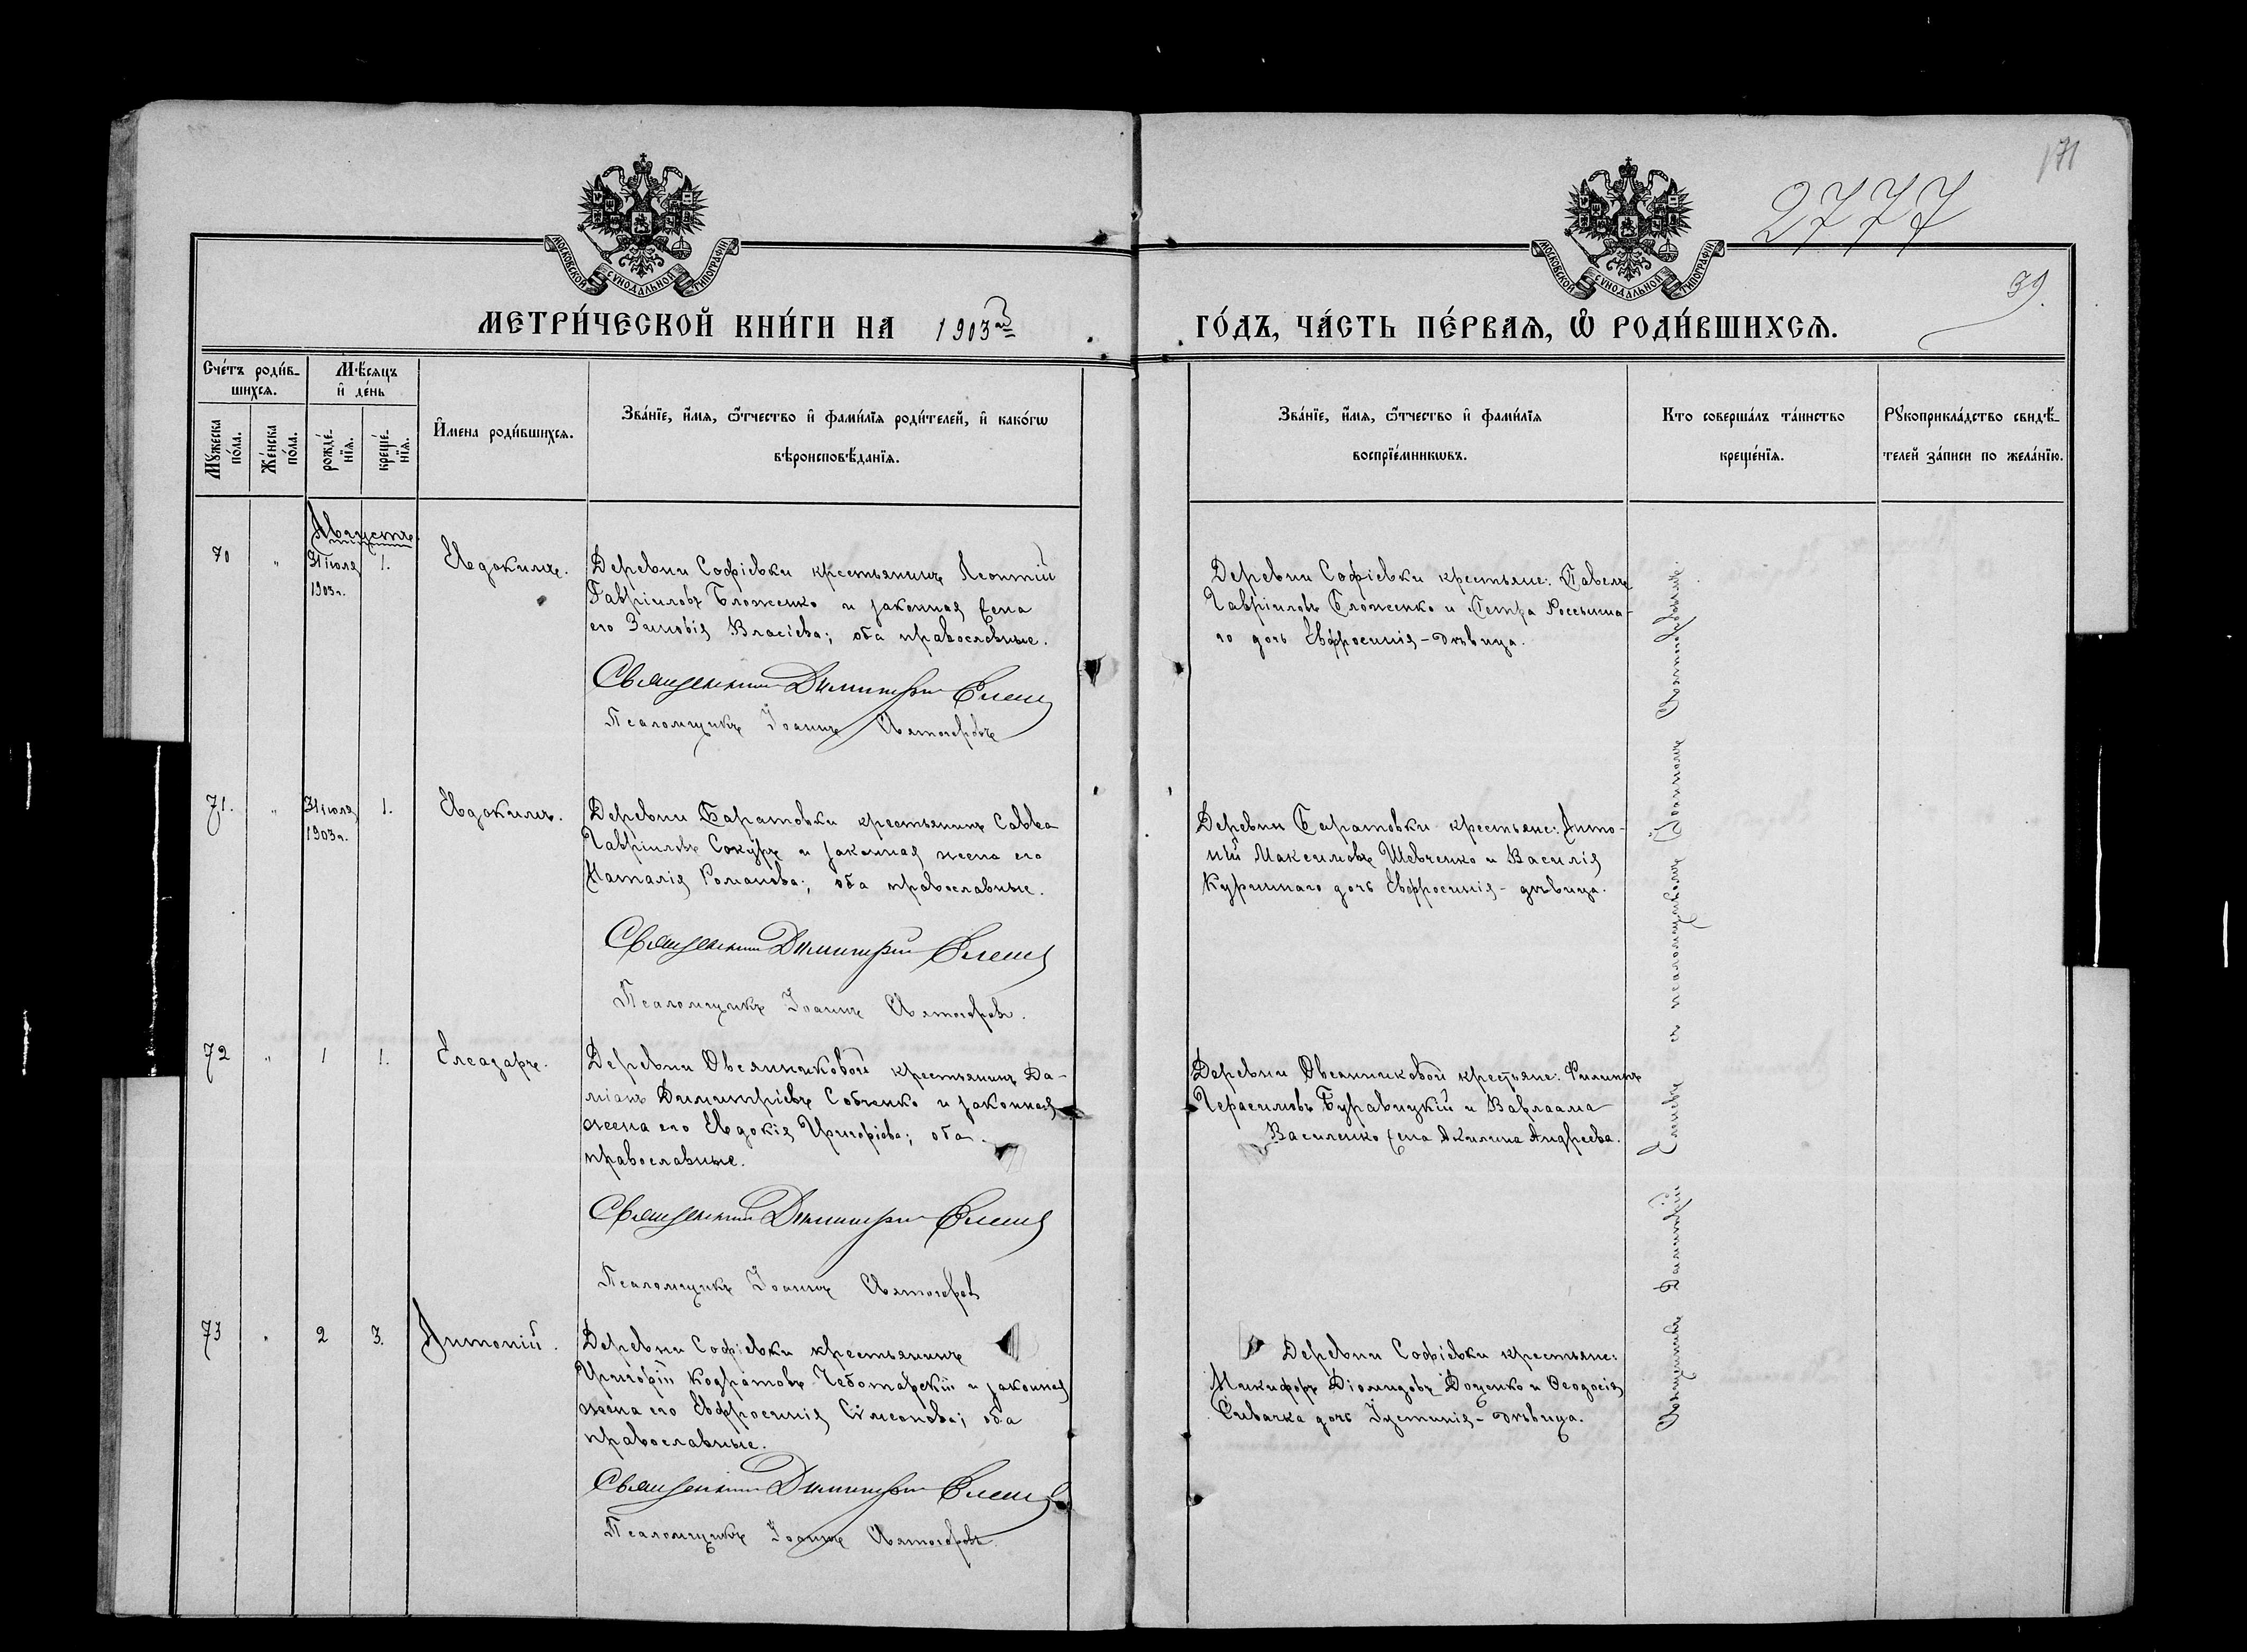 171
2777
39.
МОСКОВСКОЙ СѴНОДАЛЬНОЙ ТИПОГРАФІИ
МОСКОВСКОЙ СѴНОДАЛЬНОЙ ТИПОГРАФІИ
МЕТРИ́ЧЕСКОЙ КНИ́ГИ НА 1903й
ГО́ДЪ, ЧА́СТЬ ПЕ́РВАѦ, Ѡ РОДИ́ВШИХСѦ.
Сче́тъ роди́в-
шихсѧ.
Мѣ́сѧцъ
и҆ де́нь
Мꙋ́жеска
по́ла.
Же́нска
по́ла.
рожде́-
нїѧ.
креще́-
нїѧ.
И҆мена роди́вшихсѧ.
Зва́нїе, и҆́мѧ, ѻ҆́тчество и҆ фами́лїѧ роди́телей, и҆ како́гѡ
вѣроисповѣ́данїѧ.
Зва́нїе, и҆́мѧ, ѻ҆́тчество и҆ фами́лїѧ
воспрїе́мникѡвъ.
Кто соверша́лъ та́инство
креще́нїѧ.
Рꙋкоприкла́дство свидѣ́-
телей за́писи по жела́нїю.
Августъ.
70 " 31 іюля 1. Евдокимъ.
1903 г.
Деревни Софіевки крестьянинъ Леонтій
Гавріиловъ Бложенко и законная жена
его Зиновія Власіева; оба православные.
Священникъ Димитрій Елнев
Псаломщикъ Іоаннъ Святогоровъ
Деревни Софіевки крестьяне: Павелъ
Гавріиловъ Бложенко и Петра Россына-
го дочь Евфросинія - дѣвица.
71. " 31 іюля 1. Евдокимъ.
1903 г.
Деревни Баратовки крестьянинъ Савва
Гавріиловъ Сокуръ и законная жена его
Наталія Романова; оба православные.
Священникъ Димитрій Елнев
Псаломщикъ Іоаннъ Святогоровъ.
Деревни Баратовки крестьяне: Анто-
ній Максимовъ Шевченко и Василія
Куриннаго дочь Евфросинія - дѣвица.
72 " 1 1. Елеазаръ.
Деревни Овсянниковой крестьянинъ Да-
міанъ Димитріевъ Собченко и законная
жена его Евдокія Григоріева; оба
православные.
Священникъ Димитрій Елнев
Псаломщикъ Іоаннъ Святогоровъ
Деревни Овсянниковой крестьяне: Филиппъ
Герасимовъ Буравицкій и Варлаама
Василенко жена Акилина Андреева.
73 " 2 3. Антоній.
Деревни Софіевки крестьянинъ
Григорій Кодратовъ Чеботарскій и законная
жена его Евфросинія Сѵмеонова; оба
православные.
Священникъ Димитрій Елнев
Псаломщикъ Іоаннъ Святогоровъ.
Деревни Софіевки крестьяне:
Никифоръ Діомидовъ Доценко и Ѳеодосія
Сивачка дочь Іустинія - дѣвица.
Священникъ Димитрій Елневъ съ псаломщикомъ Іоанномъ Святогоровымъ.